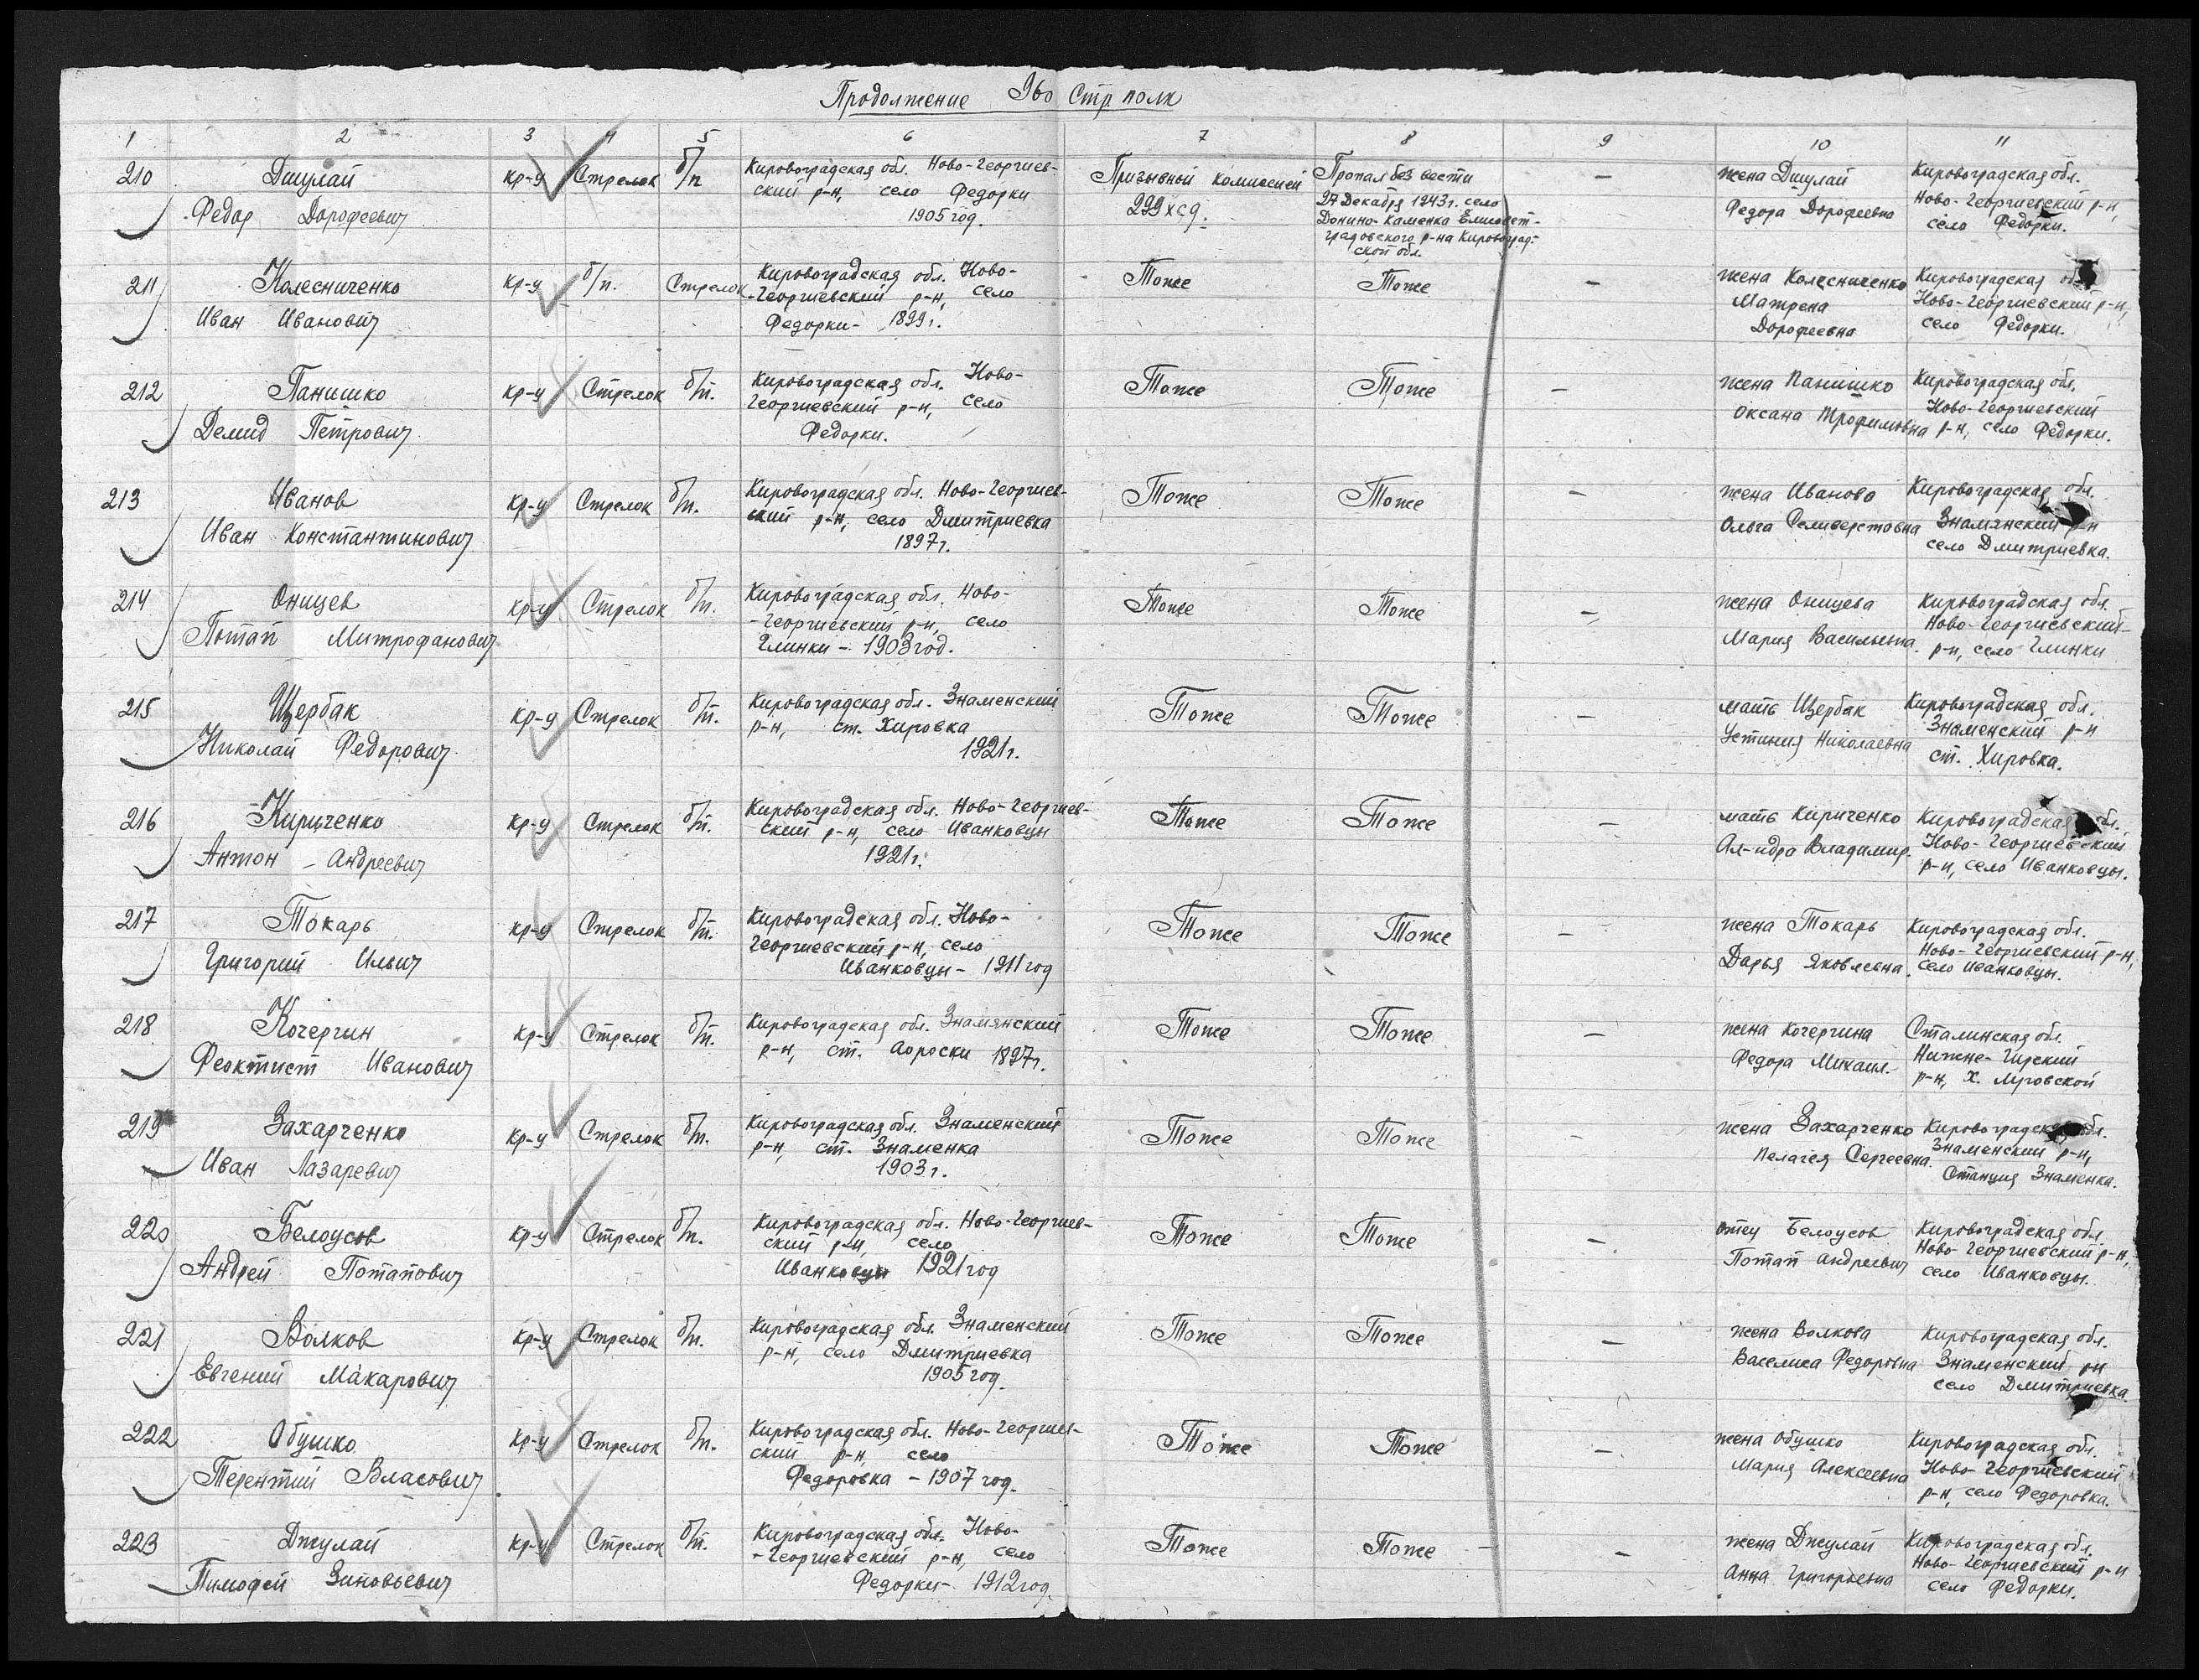 Продолжение 960 Стр. полк
1 2 3 4 5 6 7 8 9 10 11
210 Джулай кр-ц Стрелок б/п Кировоградская обл. Ново-Георгиев- Призывной комиссией Пропал без вести — жена Джулай Кировоградская обл.
Федор Дорофеевич ский р-н, село Федорки 299 хсд. 27 Декабря 1943 г. село Федора Дорофеевна Ново-Георгиевский р-н,
1905 год. Донино-Каменка Елизавет- село Федорки.
градовского р-на Кировоград-
ской обл.
211 Колесниченко кр-ц б/п. Стрелок Кировоградская обл. Ново- Тоже Тоже — жена Колесниченко Кировоградская обл.
Иван Иванович -Георгиевский р-н, село Матрена Ново-Георгиевский р-н,
Федорки - 1899 г. Дорофеевна село Федорки.
212 Панишко кр-ц Стрелок б/п. Кировоградская обл. Ново- Тоже Тоже — жена Панишко Кировоградская обл.
Демид Петрович Георгиевский р-н, село Оксана Трофимовна Ново-Георгиевский
Федорки. р-н, село Федорки.
213 Иванов кр-ц Стрелок б/п. Кировоградская обл. Ново-Георгиев- Тоже Тоже — жена Иванова Кировоградская обл.
Иван Константинович ский р-н, село Дмитриевка Ольга Селиверстовна Знамянский р-н
1897 г. село Дмитриевка.
214 Онищев кр-ц Стрелок б/п. Кировоградская обл. Ново- Тоже Тоже — жена Онищева Кировоградская обл.
Потап Митрофанович -Георгиевский р-н, село Мария Васильевна Ново-Георгиевский-
Глинки - 1903 год. р-н, село Глинки
215 Щербак кр-ц Стрелок б/п. Кировоградская обл. Знаменский Тоже Тоже — мать Щербак Кировоградская обл.
Николай Федорович р-н, ст. Хировка Устиния Николаевна Знаменский р-н
1921 г. ст. Хировка.
216 Кириченко кр-ц Стрелок б/п. Кировоградская обл. Ново-Георгиев- Тоже Тоже — мать Кириченко Кировоградская обл.
Антон - Андреевич ский р-н, село Иванковцы Ал-ндра Владимир. Ново-Георгиевский
1921 г. р-н, село Иванковцы.
217 Токарь кр-ц Стрелок б/п. Кировоградская обл. Ново- Тоже Тоже — жена Токарь Кировоградская обл.
Григорий Ильич Георгиевский р-н, село Дарья Яковлевна. Ново-Георгиевский р-н,
Иванковцы - 1911 год село Иванковцы.
218 Кочергин кр-ц Стрелок б/п. Кировоградская обл. Знамянский Тоже Тоже — жена Кочергина Сталинская обл.
Феоктист Иванович р-н, ст. 1897 г. Федора Михаил.- Нижне-Чирский
р-н, х.
219 Захарченко кр-ц Стрелок б/п. Кировоградская обл. Знаменский Тоже Тоже — жена Захарченко Кировоградская обл.
Иван Лазаревич р-н, ст. Знаменка Пелагея Сергеевна. Знаменский р-н,
1903 г. Станция Знаменка.
220 Белоусов кр-ц Стрелок б/п. Кировоградская обл. Ново-Георгиев- Тоже Тоже — отец Белоусов Кировоградская обл.
Андрей Потапович ский р-н, село Потап Андреевич Ново-Георгиевский р-н,
Иванковцы 1921 год село Иванковцы.
221 Волков кр-ц Стрелок б/п. Кировоградская обл. Знаменский Тоже Тоже — жена Волкова Кировоградская обл.
Евгений Макарович р-н, село Дмитриевка Васелика Федоровна Знаменский рн
1905 год. село Дмитриевка.
222 Обушко кр-ц Стрелок б/п. Кировоградская обл. Ново-Георгиев- Тоже Тоже — жена Обушко Кировоградская обл.
Терентий Власович ский р-н, село Мария Алексеевна Ново-Георгиевский
Федоровка - 1907 год. р-н, село Федоровка.
223 Джулай кр-ц Стрелок б/п. Кировоградская обл. Ново- Тоже Тоже — жена Джулай Кировоградская обл.
Тимофей Зиновьевич -Георгиевский р-н, село Анна Григорьевна Ново-Георгиевский р-н
Федорки - 1912 год. село Федорки.